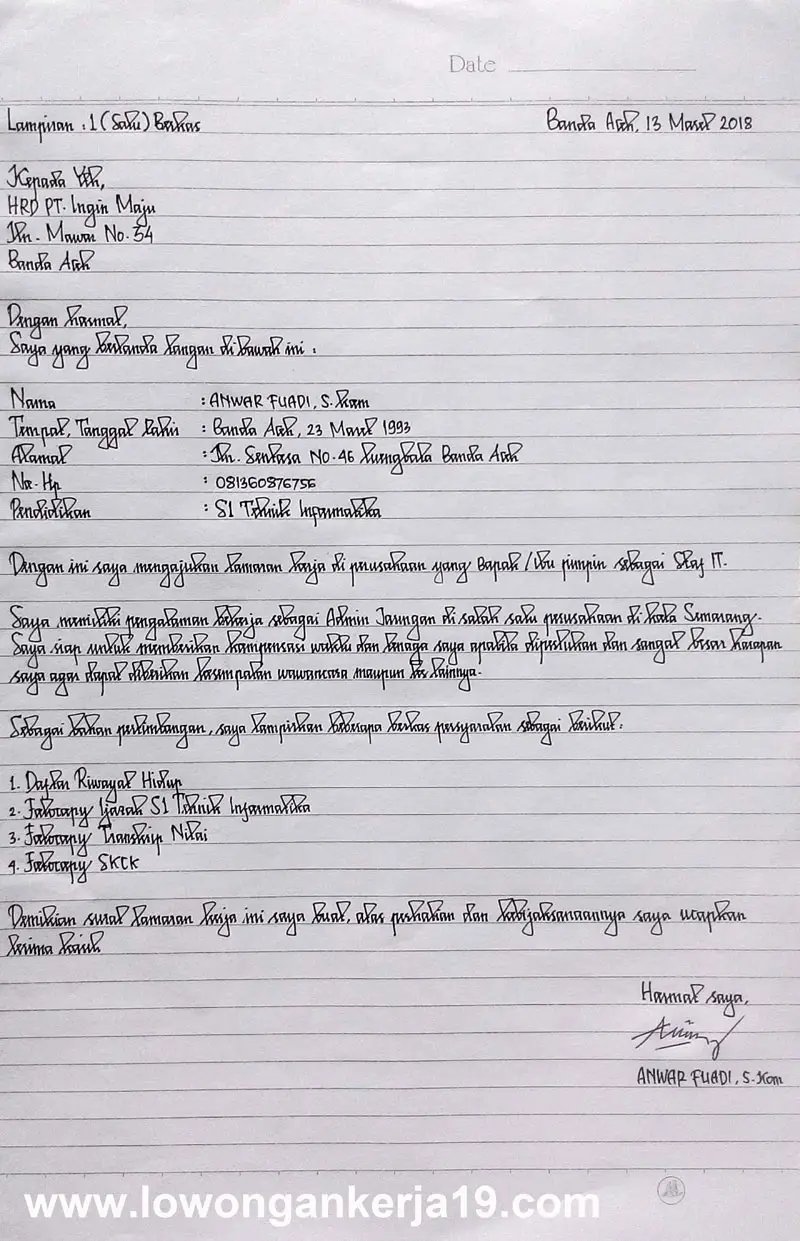 Date
Lampiran : 1 (Satu) Berkas
Banda Aceh, 13 Maret 2018
Kepada Yth,
HRD PT. Ingin Maju
Jln. Mawar No. 54
Banda Aceh
Dengan hormat,
Saya yang bertanda tangan di bawah ini :
Nama : ANWAR FUADI, S. Kom
Tempat, Tanggal Lahir : Banda Aceh, 23 Maret 1993
Alamat : Jln. Sentosa No. 46 Luengbata Banda Aceh
No. Hp : 081360876756
Pendidikan : S1 Teknik Informatika
Dengan ini saya mengajukan lamaran kerja di perusahaan yang Bapak / Ibu pimpin sebagai Staf IT.
Saya memiliki pengalaman bekerja sebagai Admin Jaringan di salah satu perusahaan di kota Semarang.
Saya siap untuk memberikan kompensasi waktu dan tenaga saya apabila diperlukan dan sangat besar harapan
saya agar dapat diberikan kesempatan wawancara maupun tes lainnya.
Sebagai bahan pertimbangan, saya lampirkan beberapa berkas persyaratan sebagai berikut :
1. Daftar Riwayat Hidup
2. Fotocopy Ijazah S1 Teknik Informatika
3. Fotocopy Transkip Nilai
4. Fotocopy SKCK
Demikian surat lamaran kerja ini saya buat, atas perhatian dan kebijaksanaannya saya ucapkan
terima kasih
Hormat saya,
ANWAR FUADI, S. Kom
www.lowongankerja19.com